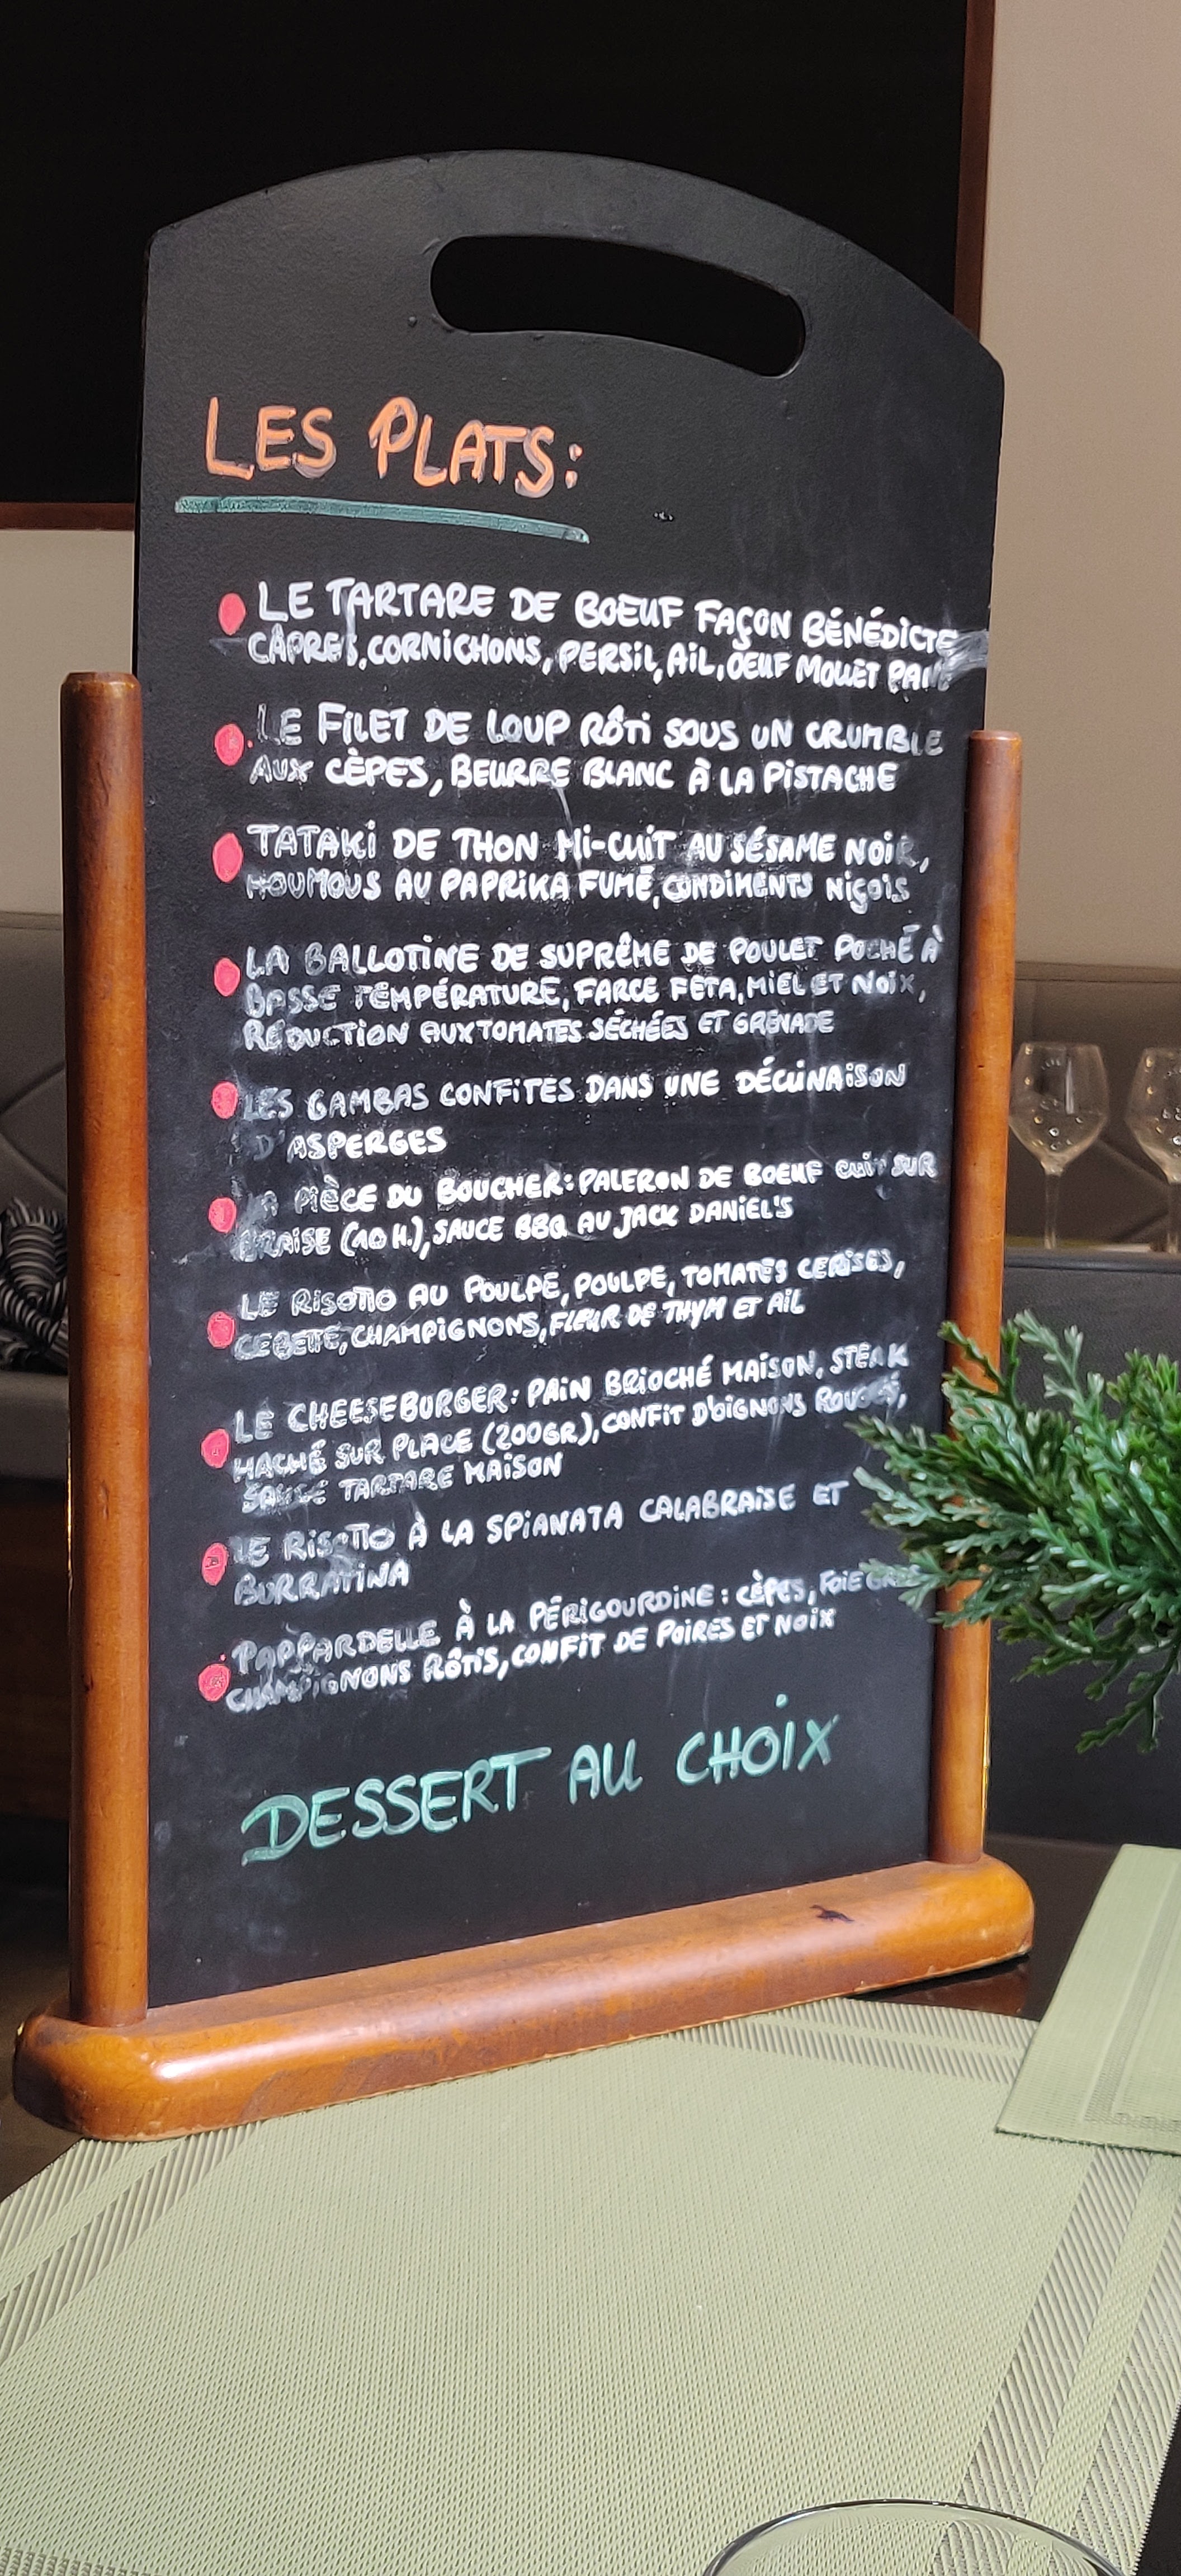 LES PLATS:
LE TARTARE DE BOEUF FAÇON BÉNÉDICTE
CÂPRES, CORNICHONS, PERSIL, AIL, OEUF MOLLET PANÉ
LE FILET DE LOUP RÔTI SOUS UN CRUMBLE
AUX CÈPES, BEURRE BLANC À LA PISTACHE
TATAKI DE THON MI-CUIT AU SÉSAME NOIR,
HOUMOUS AU PAPRIKA FUMÉ, CONDIMENTS NIÇOIS
LA BALLOTINE DE SUPRÊME DE POULET POCHÉ À
BASSE TEMPÉRATURE, FARCE FETA, MIEL ET NOIX,
RÉDUCTION AUX TOMATES SÉCHÉES ET GRENADE
LES GAMBAS CONFITES DANS UNE DÉCLINAISON
D'ASPERGES
LA PIÈCE DU BOUCHER: PALERON DE BOEUF CUIT SUR
BRAISE (10 H.), SAUCE BBQ AU JACK DANIEL'S
LE RISOTTO AU POULPE, POULPE, TOMATES CERISES,
CEBETTE, CHAMPIGNONS, FLEUR DE THYM ET AIL
LE CHEESEBURGER: PAIN BRIOCHÉ MAISON, STEAK
HACHÉ SUR PLACE (200GR), CONFIT D'OIGNONS ROUGES,
SAUCE TARTARE MAISON
LE RISOTTO À LA SPIANATA CALABRAISE ET
BURRATINA
PAPPARDELLE À LA PÉRIGOURDINE: CÈPES, FOIE GRAS
CHAMPIGNONS RÔTIS, CONFIT DE POIRES ET NOIX
DESSERT AU CHOIX